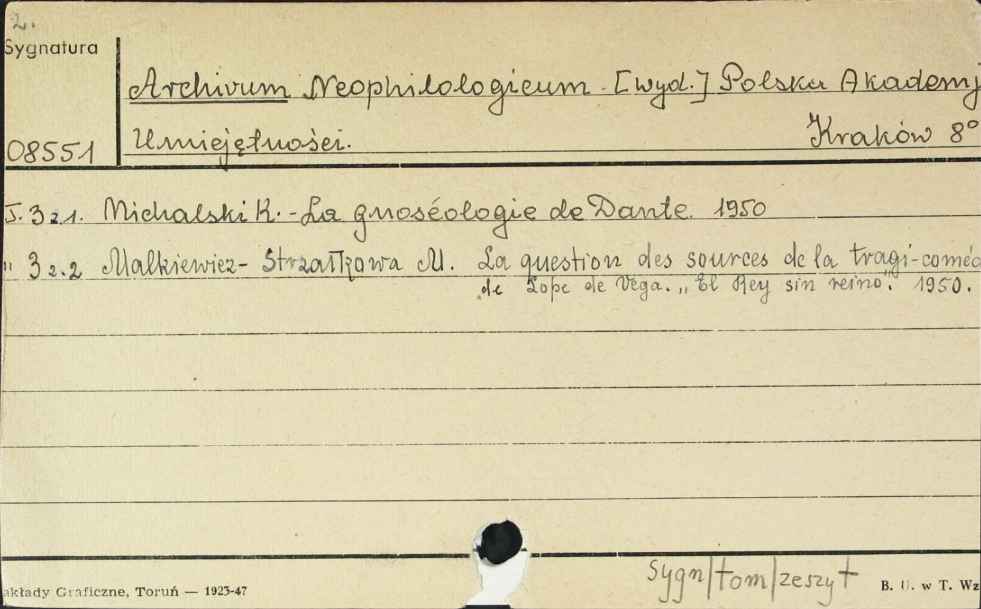 2.
Sygnatura
Archivum Neophilologicum. [wyd.] Polska Akademj
08551 Umiejętności. Kraków 8°
T. 3 z.1. Michalski K. - La gnoséologie de Dante. 1950
" 3 z.2 Małkiewicz-Strzałkowa M. La question des sources de la tragi-coméd
de Lope de Vega. „El Rey sin reino". 1950.
Sygn/tom/zeszyt
akłady Graficzne, Toruń — 1923-47
B. U. w T. Wz